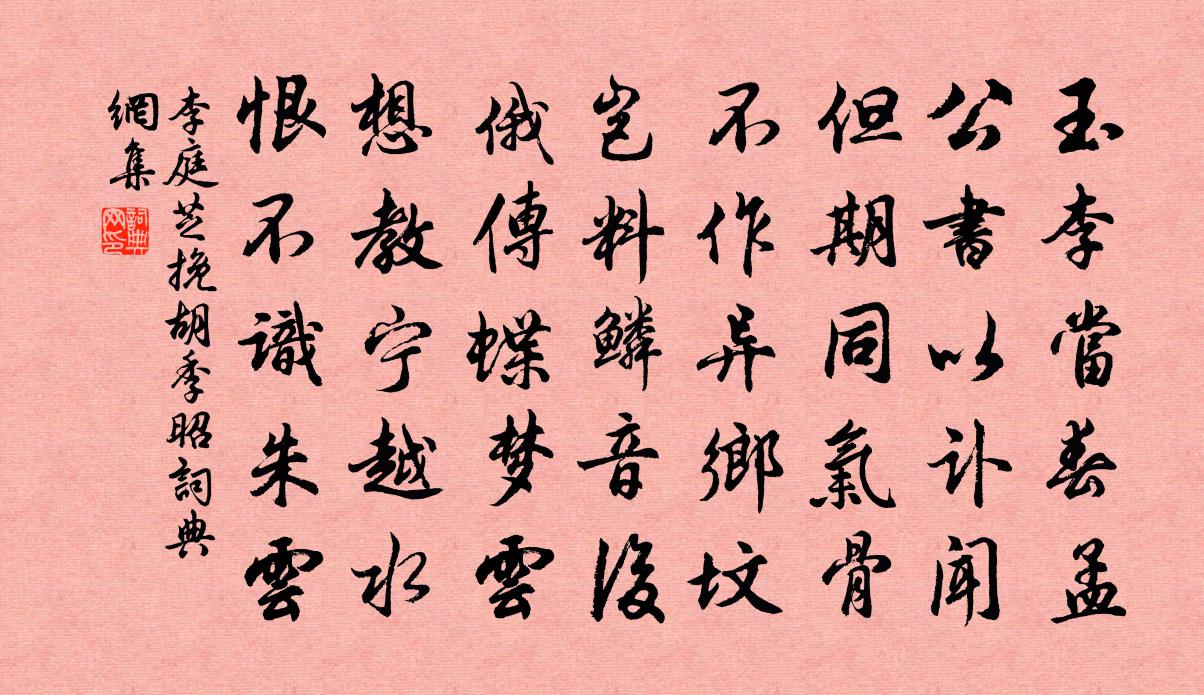 玉李當春孟
公書以訃聞
但期同氣骨
不作异鄉坟
岂料鱗音後
俄傳蝶梦雲
想教宁越水
恨不識朱雲
李庭芝挽胡季昭詞典
網集
詞典
网印